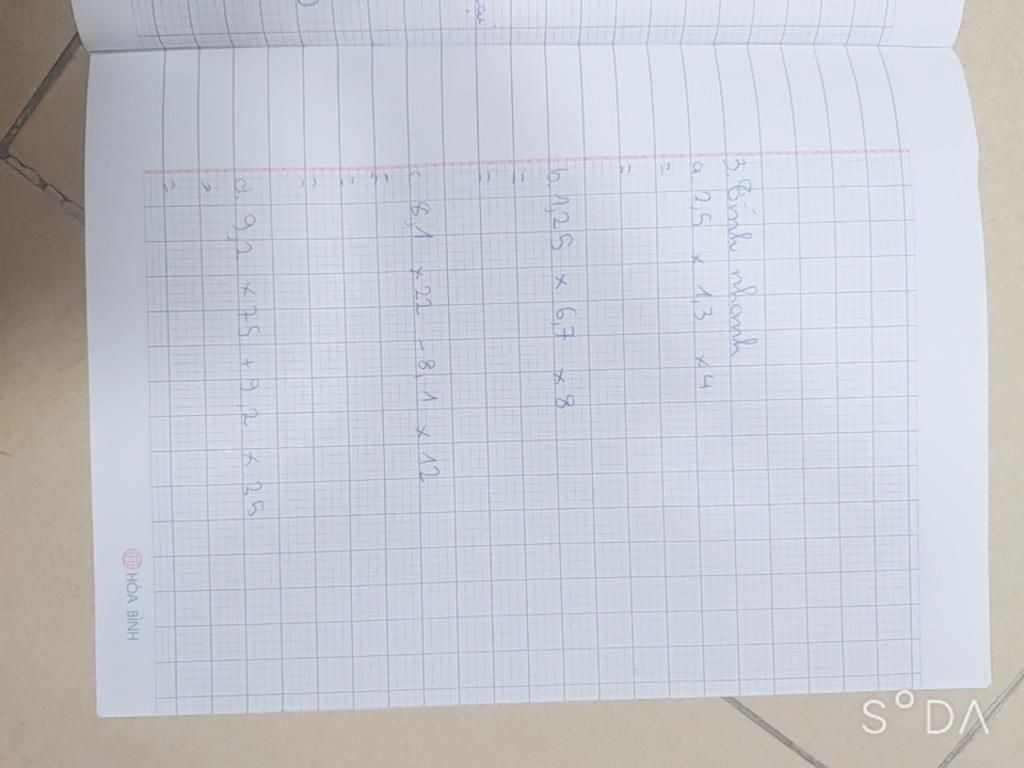 3. Tính nhanh
a. 2,5 × 1,3 × 4
=
=
b. 1,25 × 6,7 × 8
=
=
c. 8,1 × 22 - 8,1 × 12
=
=
=
d. 9,2 × 75 + 9,2 × 25
=
=
HÒA BÌNH
S°DA